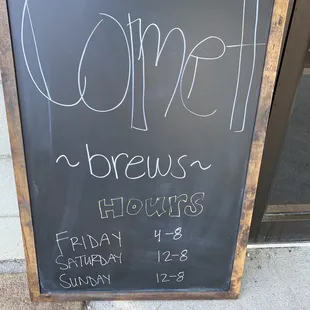 Comet
~brews~
HOURS
FRIDAY 4-8
SATURDAY 12-8
SUNDAY 12-8